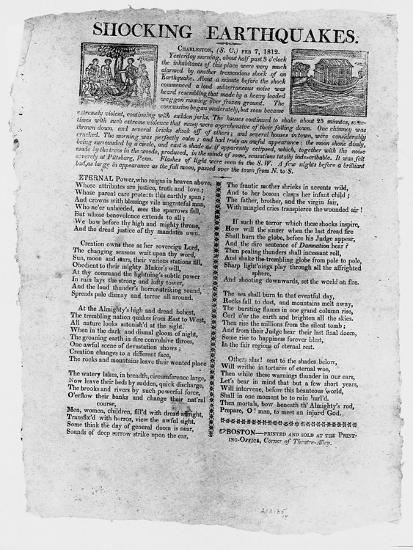 SHOCKING EARTHQUAKES.
CHARLESTON, (S. C.) FEB 7, 1812.
Yesterday morning, about half past 3 o'clock
the inhabitants of this place were very much
alarmed by another tremendous shock of an
Earthquake. About a minute before the shock
commenced a loud subterraneous noise was
heard resembling that made by a heavy loaded
waggon running over frozen ground. The
concussion began moderately, but soon became
extremely violent, continuing with sudden jerks. The houses continued to shake about 25 minutes, some-
times with such extreme violence that many were apprehensive of their falling down. One chimney was
thrown down, and several bricks shook off of others; and several houses in town, were considerably
cracked. The morning was perfectly calm; and had truly an awful appearance: the moon shone dimly,
being surrounded by a smoke, and cast a shade as if apparently eclipsed, which, together with the noise
made by the trees in the woods, produced, to the minds of some, sensations totally indescribable. It was felt
severely at Pittsburg, Penn. Flashes of light were seen in the S.W. A few nights before a brilliant
body as large in appearance as the full moon, passed over the town from N. to S.
ETERNAL Power, who reigns in heaven above,
Whose attributes are justice, truth and love;
Whose parent care protects this earthly span;
And crowns with blessings vile ungrateful man,
Who ne'er unheeded, sees the sparrows fall,
But whose benevolence extends to all;
We bow before thy high and mighty throne,
And the dread justice of thy mandates own.
Creation owns thee as her sovereign Lord,
The changing seasons wait upon thy word,
Sun, moon and stars, their various stations fill,
Obedient to their mighty Maker's will,
At thy command the lightning's subtle power
In rain lays the strong and lofty tower,
And the loud thunder's horror-striking sound,
Spreads pale dismay and terror all around.
At the Almighty's high and dread behest,
The trembling nation quakes from East to West,
All nature looks astounish'd at the sight.
When in the dark and dismal gloom of night,
The groaning earth in dire convulsive throes,
One awful scene of devastation shows;
Creation changes to a different face,
The rocks and mountains leave their wonted place
The watery lakes, in breadth, circumference large,
Now leave their beds by sudden, quick discharge,
The brooks and rivers by such powerful force,
O'erflow their banks and change their natural
course,
Men, women, children, fill'd with dread affright,
Transfix'd with horror, view the awful sight.
Some think the day of general doom is near,
Sounds of deep sorrow strike upon the ear,
The frantic mother shrieks in accents wild,
And to her bosom clasps her infant child;
The father, brother, and the virgin fair,
With mingled cries transpierce the wounded air!
If such the terror which these shocks inspire,
How will the sinner when the last dread fire
Shall burn the globe, before his Judge appear,
And the dire sentence of Damnation hear?
Then pealing thunders shall incessant roll,
And shake the trembling globe from pole to pole,
Sharp lightnings play through all the affrighted
sphere,
And shooting downwards, set the world on fire.
The sea shall burn in that eventful day,
Rocks fall to dust, and mountains melt away,
The bursting flames in one grand column rise,
Curl o'er the earth and brighten all the skies.
Then rise the millions from the silent tomb;
And from their Judge hear their last final doom,
Some rise to happiness forever blest,
In the fair regions of eternal rest.
Others shall sent to the shades below,
Will writhe in tortures of eternal woe,
Then while these warnings thunder in our ears,
Let's bear in mind that but a few short years,
Will intervene, before this beauteous world,
Shall in one moment be to ruin hurl'd.
Then mortals, bow beneath th' Almighty's rod,
Prepare, O! man, to meet an injur'd God.
BOSTON—PRINTED AND SOLD AT THE PRINT-
ING-OFFICE, Corner of Theatre-Alley.